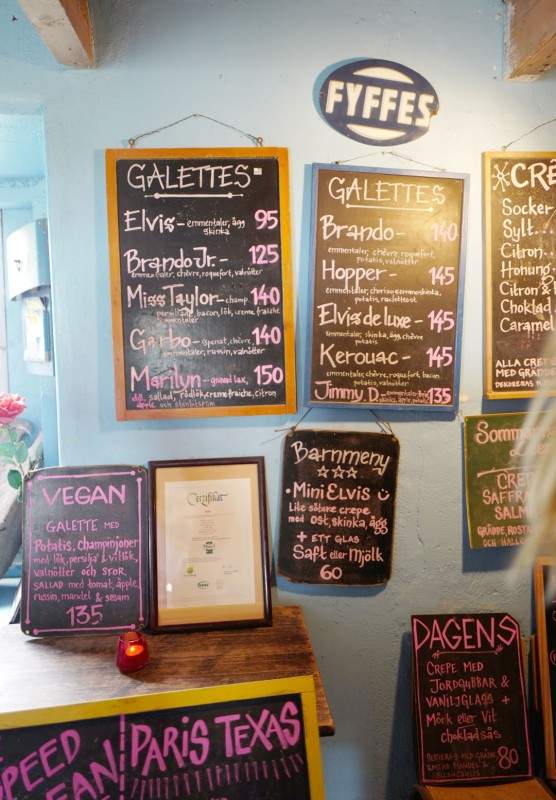 FYFFES
GALETTES
Elvis - emmentaler, ägg 95
skinka
Brando Jr. - 125
emmentaler, chèvre, roquefort, valnötter
Miss Taylor - champ. 140
bacon, lök, creme fraiche
emmentaler
Garbo - spenat, chèvre, 140
emmentaler, russin, valnötter
Marilyn - gravad lax, 150
dill, sallad, rödlök, creme fraiche, citron
äpple och
GALETTES
Brando - 140
emmentaler, chèvre, roquefort,
potatis, valnötter
Hopper - 145
emmentaler, chorizo, serranoskinka,
potatis, racletteost
Elvis de luxe - 145
emmentaler, skinka, ägg, chèvre
potatis
Kerouac - 145
emmentaler, chèvre, roquefort, bacon
potatis, valnötter
Jimmy D. - 135
CRÊ
Socker
Sylt..
Citron..
Honung
Citron &
Choklad
Caramel
ALLA CRÊ
MED GRÄDDE
Somma
CRÊP
SAFFRA
SALM
GRÄDDE, ROSTA
OCH HALLO
Barnmeny
• Mini Elvis
Lite sötare crepe
med ost, skinka, ägg
+ ETT GLAS
Saft eller Mjölk
60
VEGAN
GALETTE MED
Potatis, Champinjoner
med lök, persilja & vitlök,
valnötter och STOR
SALLAD med tomat, äpple,
russin, mandel & sesam
135
Certifikat
DAGENS
CREPE MED
JORDGUBBAR &
VANILJGLASS +
Mörk eller Vit
chokladsås
80
SPEED
EAN
PARIS TEXAS